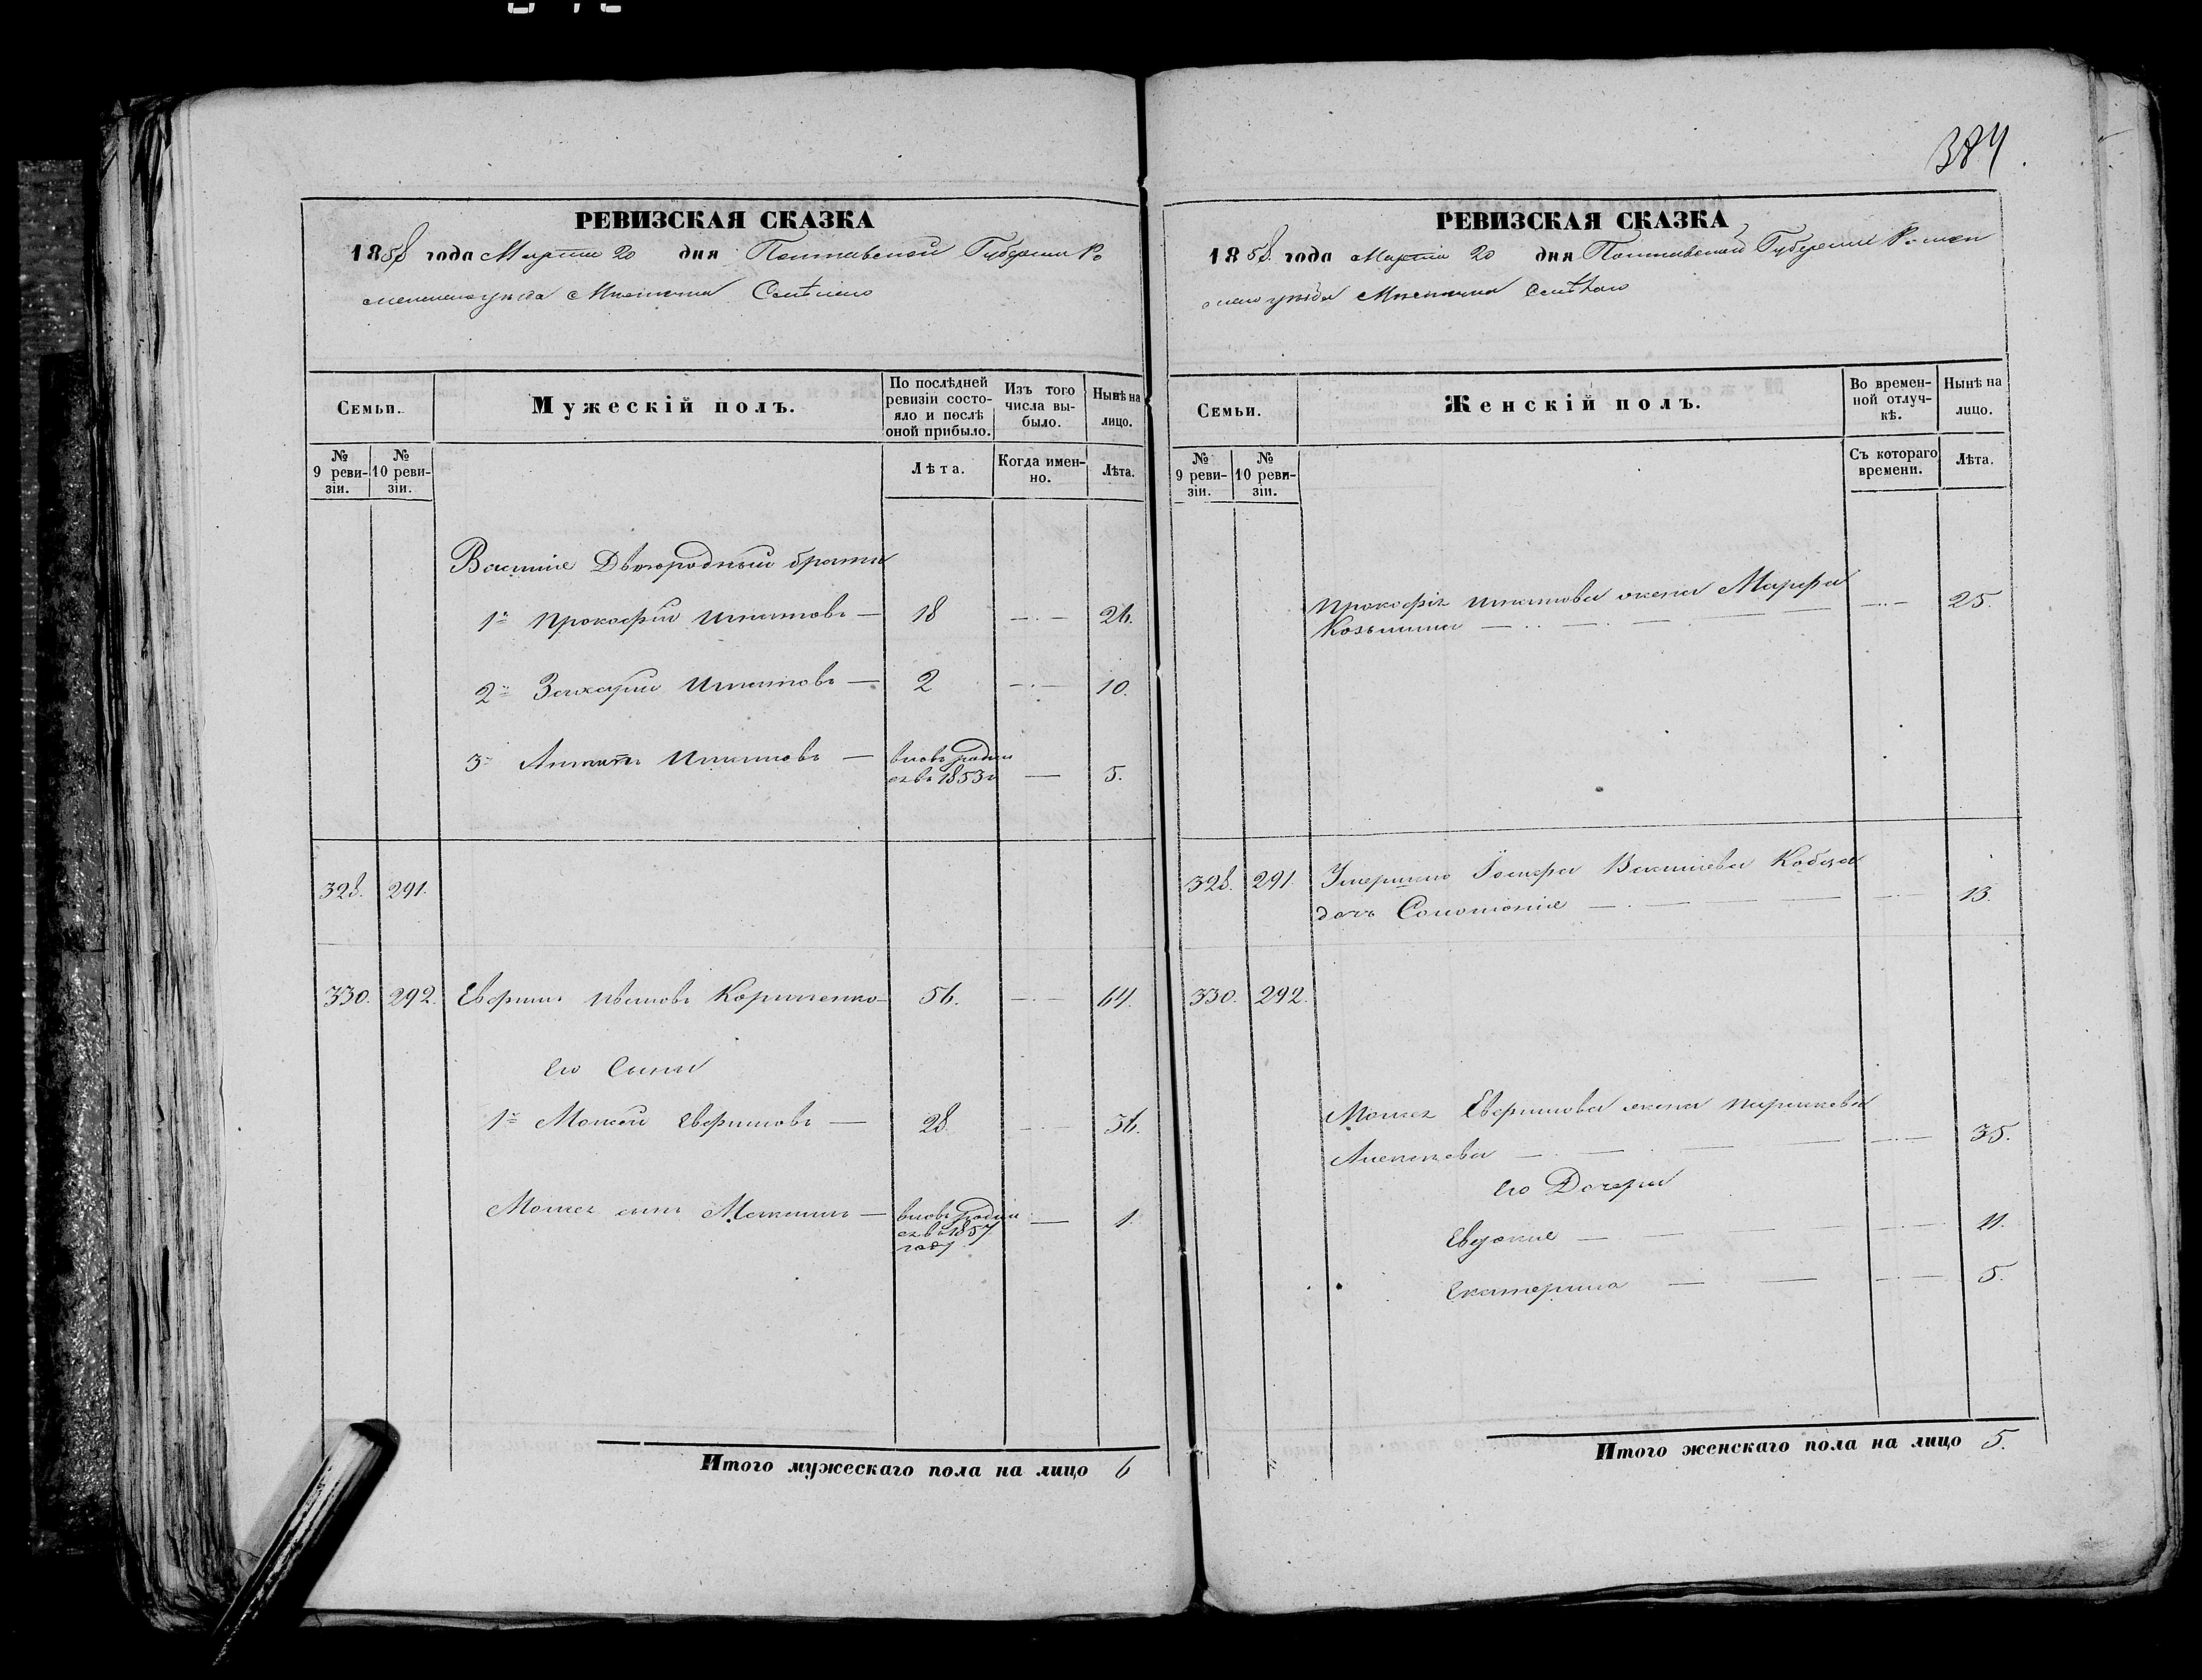 384
РЕВИЗСКАЯ СКАЗКА
1858 года Марта 20 дня Полтавской Губернии Ро
менскаго уезда Местечка
Семьи.
Мужескій полъ.
По послѣдней ревизіи состояло и послѣ оной прибыло.
Изъ того числа выбыло.
Нынѣ на лицо.
№ 9 ревизіи.
№ 10 ревизіи.
Лѣта.
Когда именно.
Лѣта.
Двоюродныи братья
1й Прокофий Игнатовъ — 18 —·— 26.
2й Захарий Игнатовъ — 2 —·— 10.
3й Игнатовъ — вновь родил
ся въ 1853 г — 5.
328. 291.
330. 292. Евфимъ Ивановъ — 56. —·— 64.
Его Сыны
1й Моисей Евфимовъ — 28 —·— 36.
Моисея сынъ Максимъ — вновь родил
ся въ 1857
году — 1.
Итого мужескаго пола на лицо 6
РЕВИЗСКАЯ СКАЗКА
1858 года Марта 20 дня Полтавской Губернии Ромен
скаго уѣзда Местечка
Семьи.
Женскій полъ.
Во временной отлучкѣ.
Нынѣ на лицо.
№ 9 ревизіи.
№ 10 ревизіи.
Съ котораго времени.
Лѣта.
Прокофія Игнатова жена Марфа
Козьмина — —·— 25.
328. 291. Умершаго Іосифа Васильева
дочь Соломония — 13.
330. 292.
Моисея Евфимова жена Параскева
Алексеева — —·— 35.
Его Дочери
Евдокия — — 11.
Екатерина — —·— 5.
Итого женскаго пола на лицо 5.